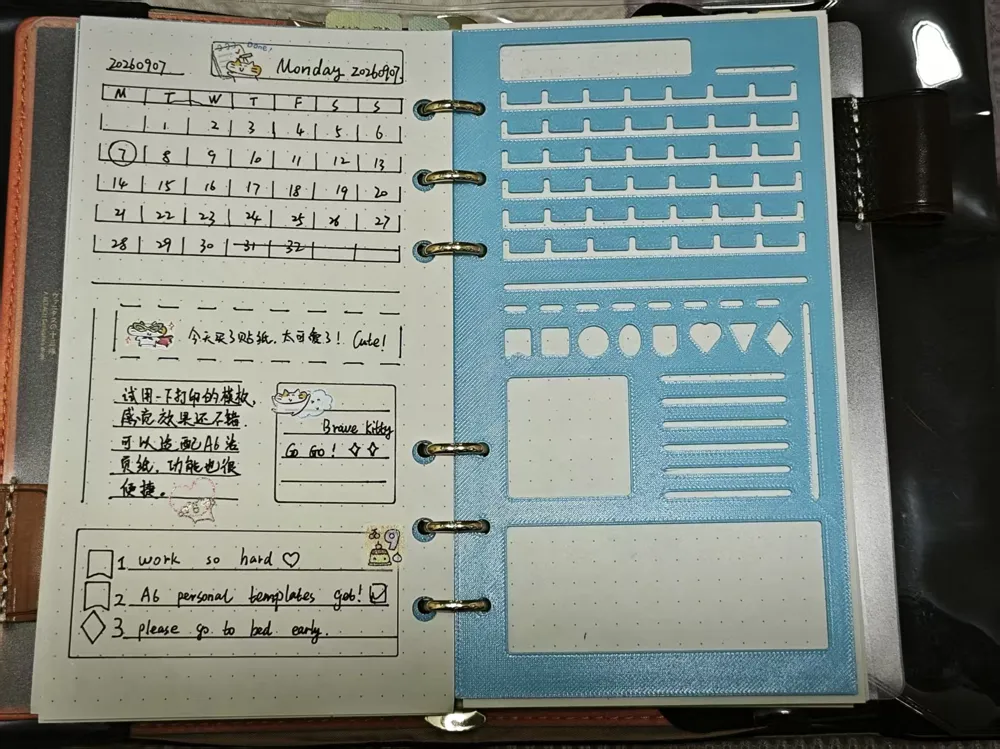 20260907
Done!
Monday 20260907
M T W T F S S
1 2 3 4 5 6
7 8 9 10 11 12 13
14 15 16 17 18 19 20
21 22 23 24 25 26 27
28 29 30 31 32
今天买了贴纸,太可爱了! Cute!
试用一下打印的模板,
感觉效果还不错
可以适配A6活
页纸,功能也很
便捷。
Brave Kitty
Go Go!
1 work so hard
2 A6 personal templates get!
3 please go to bed early.